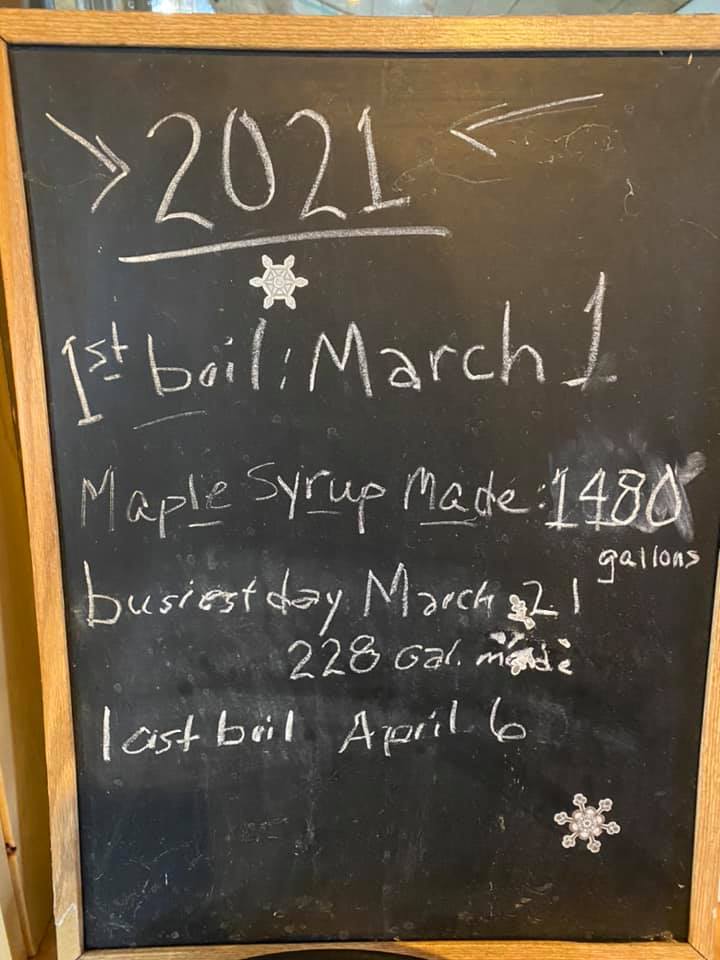 2021
1st boil: March 1
Maple Syrup Made: 1480
gallons
busiest day March 21
228 Gal. made
last boil April 6